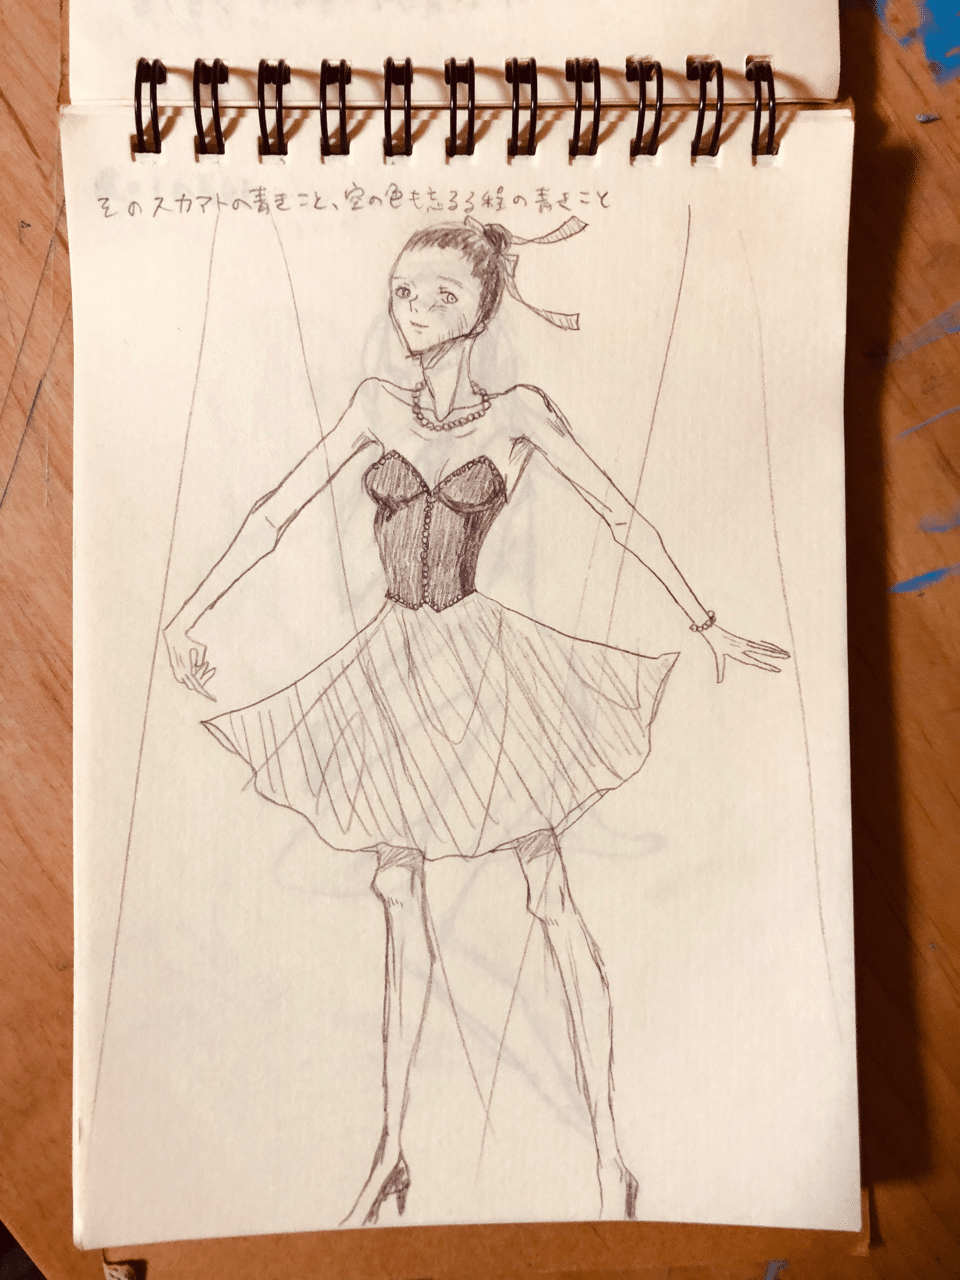 そのスカアトの青きこと、空の色も忘るる程の青きこと